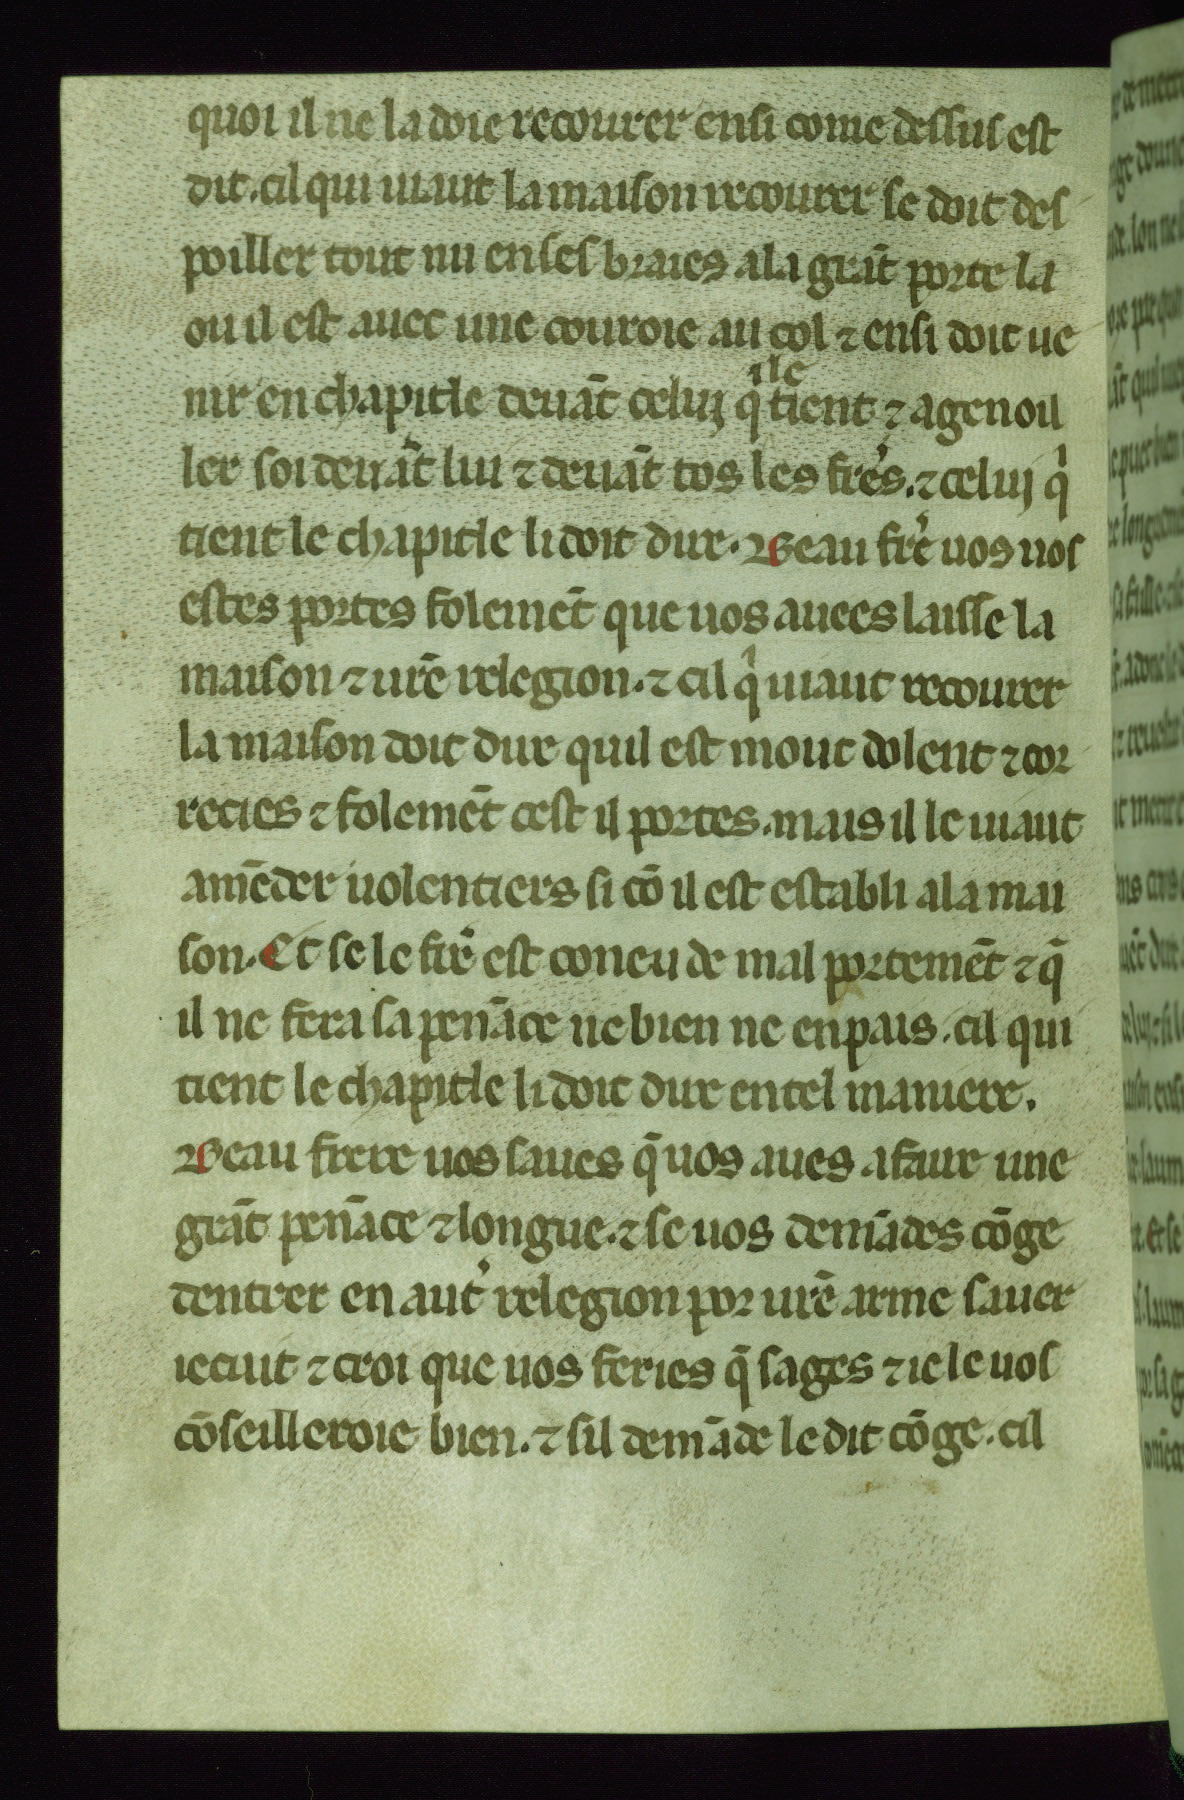 quoi il ne la doie recourer ensi come dessus est
dit. cil qui uiaut la maison recourer se doit des
poiller tout nu en ses braies a la grāt porte la
ou il est auec une couroie au col ⁊ ensi doit ue
nir en chapitle deuāt celuj q̇ ile tient ⁊ agenoil
ler soi deuāt lui ⁊ deuāt tos les fre̾s. ⁊ celuj qͥ
tient le chapitle li doit dire. Beau fre̾ uos uos
estes portes folemēt que uos auees laisse la
maison ⁊ ur̄e relegion. ⁊ cil qͥ uiaut recourer
la maison doit dire quil est mout dolent ⁊ cor
recies ⁊ folemēt cest il portes. mais il le uiaut
amēder uolentiers si cō il est establi a la mai
son. Et se le fr̄e est coneu de mal portemēt ⁊ q̄
il ne fera sa penāce ne bien ne en pais. cil qui
tient le chapitle li doit dire en tel maniere.
Beau frere uos saues q̄ uos aues a faire une
grāt penāce ⁊ longue. ⁊ se uos demādes cōge
dentrer en aut̾ relegion por ur̄e arme sauer
ie cuit ⁊ croi que uos feries q̄ sages ⁊ ie le uos
cōseilleroie bien. ⁊ sil demāde le dit cōge. cil